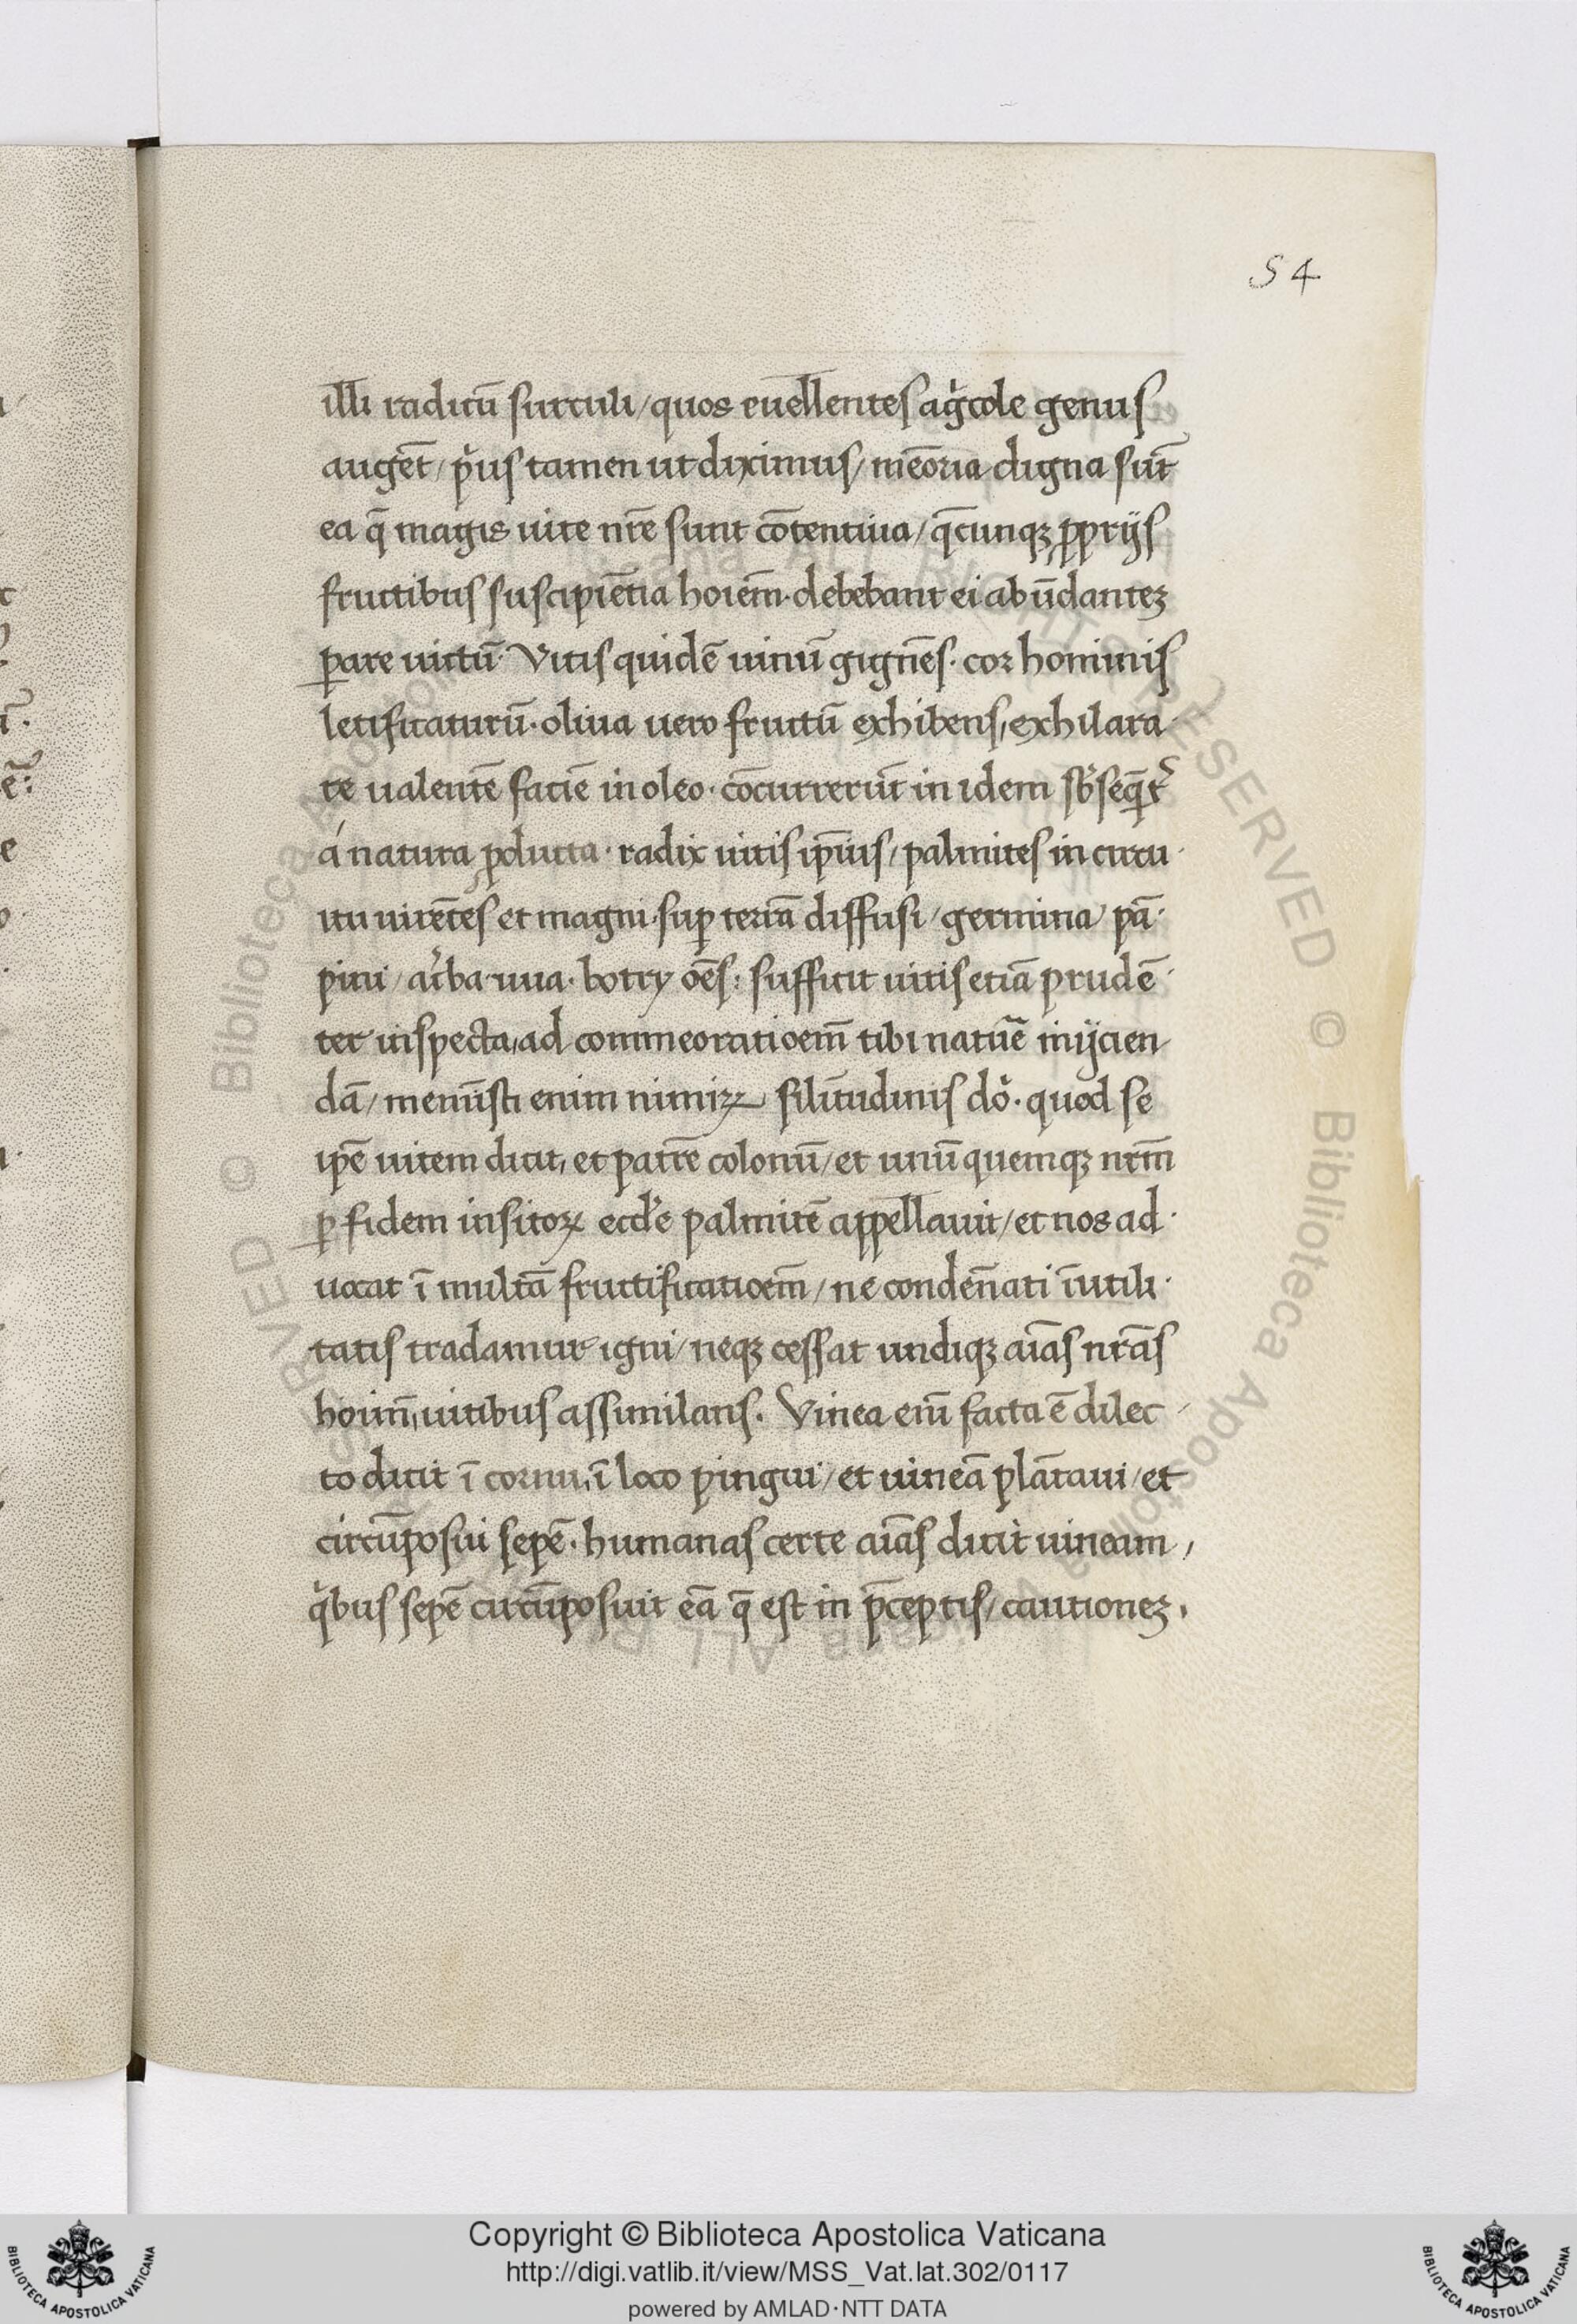 54
illi radicū surculi/quos euellentes ag̾cole genus
augēt/p̾us tamen ut diximus/mēoria digna sūt
ea q̄ magis uite nr̄e sunt cōtentiua/q̄cunqȝ ꝓprijs
fructibus suscipiētia hoiem̄. debebant ei abūdanteȝ
ꝑare uictū. Vitis quidē uinū gignēs. cor hominis
letificaturū. oliua uero fructū exhibens, exhilara
re ualentē faciē in oleo. cōcurrerūt in idem
á natura ꝓducta. radix uitis ip̄ius/palmites in circu
itu uirētes et magni suꝑ terrā diffusi/germina/pā
pini/ac̾ba uua. botry oēs: sufficit uitis etiā prudē
ter inspecta, ad commeoratioem̄ tibi natur̄e inijcien
dā/meminīsti enim nimiꝝ silītudinis do̾. quod se
ip̄e uitem dicit, et patrē colonū/et unū quemqȝ nrm̄
ꝑ fidem insitoꝝ eccl̾e palmitē appellauit/et nos ad
uocat ī multā fructificatioem̄/ne condēnati īutili
tatis tradamur igni/neqȝ cessat undiqȝ aīas nrās
hoim̄, uitibus assimilans. Vinea enī facta ē dilec
to dicit ī cornu, ī loco pingui/et uineā plātaui/et
circūposui sepē. humanas certe aīas dicit uineam,
q̾bus sepē circūposuit eā q̄ est in p̄ceptis/cautioneȝ,
Copyright © Biblioteca Apostolica Vaticana
http://digi.vatlib.it/view/MSS_Vat.lat.302/0117
powered by AMLAD·NTT DATA
BIBLIOTECA APOSTOLICA VATICANA
BIBLIOTECA APOSTOLICA VATICANA